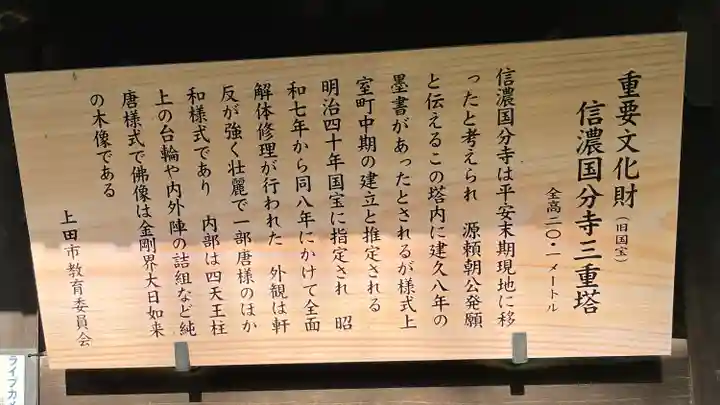 重要文化財（旧国宝）
信濃国分寺三重塔
全高二〇・一メートル
信濃国分寺は平安末期現地に移
ったと考えられ 源頼朝公発願
と伝えるこの塔内に建久八年の
墨書があったとされるが様式上
室町中期の建立と推定される
明治四十年国宝に指定され 昭
和七年から同八年にかけて全面
解体修理が行われた 外観は軒
反が強く壮麗で一部唐様のほか
和様式であり 内部は四天王柱
上の台輪や内外陣の詰組など純
唐様式で佛像は金剛界大日如来
の木像である
上田市教育委員会
ライブカメ